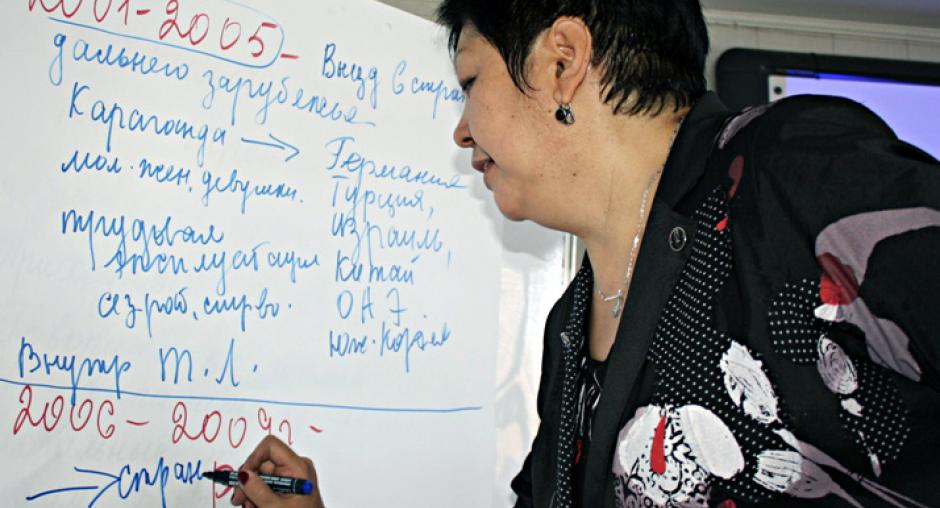 2001-2005 - Выезд в стран
дальнего зарубежья
Караганда → Германия
мол. жен, девушки. Турция,
Израиль,
трудовая Китай
эксплуатация ОАЭ.
с/х раб, стр-во. Юж. Корея
Внутр Т.Л.
2006 - 2009г -
→ стран